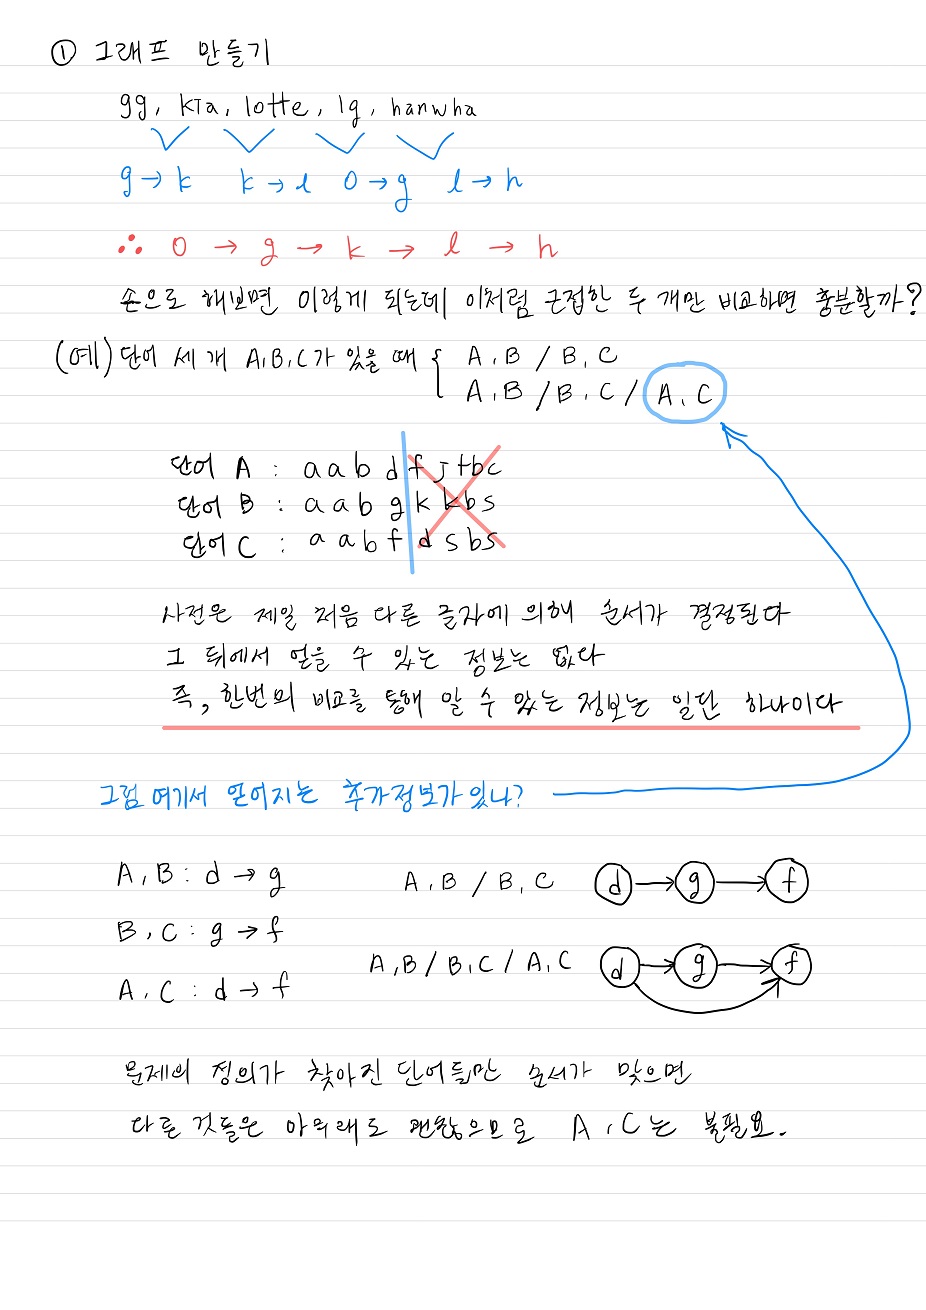 ① 그래프 만들기
gg, kia, lotte, lg, hanwha
g → k k → l o → g l → h
∴ o → g → k → l → h
손으로 해보면 이렇게 되는데 이처럼 근접한 두 개만 비교하면 충분할까?
(예) 단어 세 개 A, B, C가 있을 때 { A, B / B, C
A, B / B, C / A, C
단어 A : a a b d f j t b c
단어 B : a a b g k k b s
단어 C : a a b f d s b s
사전은 제일 처음 다른 글자에 의해 순서가 결정된다
그 뒤에서 얻을 수 있는 정보는 없다
즉, 한번의 비교를 통해 알 수 있는 정보는 일단 하나이다
그럼 여기서 얻어지는 추가정보가 있나?
A, B : d → g A, B / B, C d → g → f
B, C : g → f
A, B / B, C / A, C d → g → f
A, C : d → f
문제의 정의가 찾아진 단어들만 순서가 맞으면
다른 것들은 아무래도 괜찮으므로 A, C는 불필요.